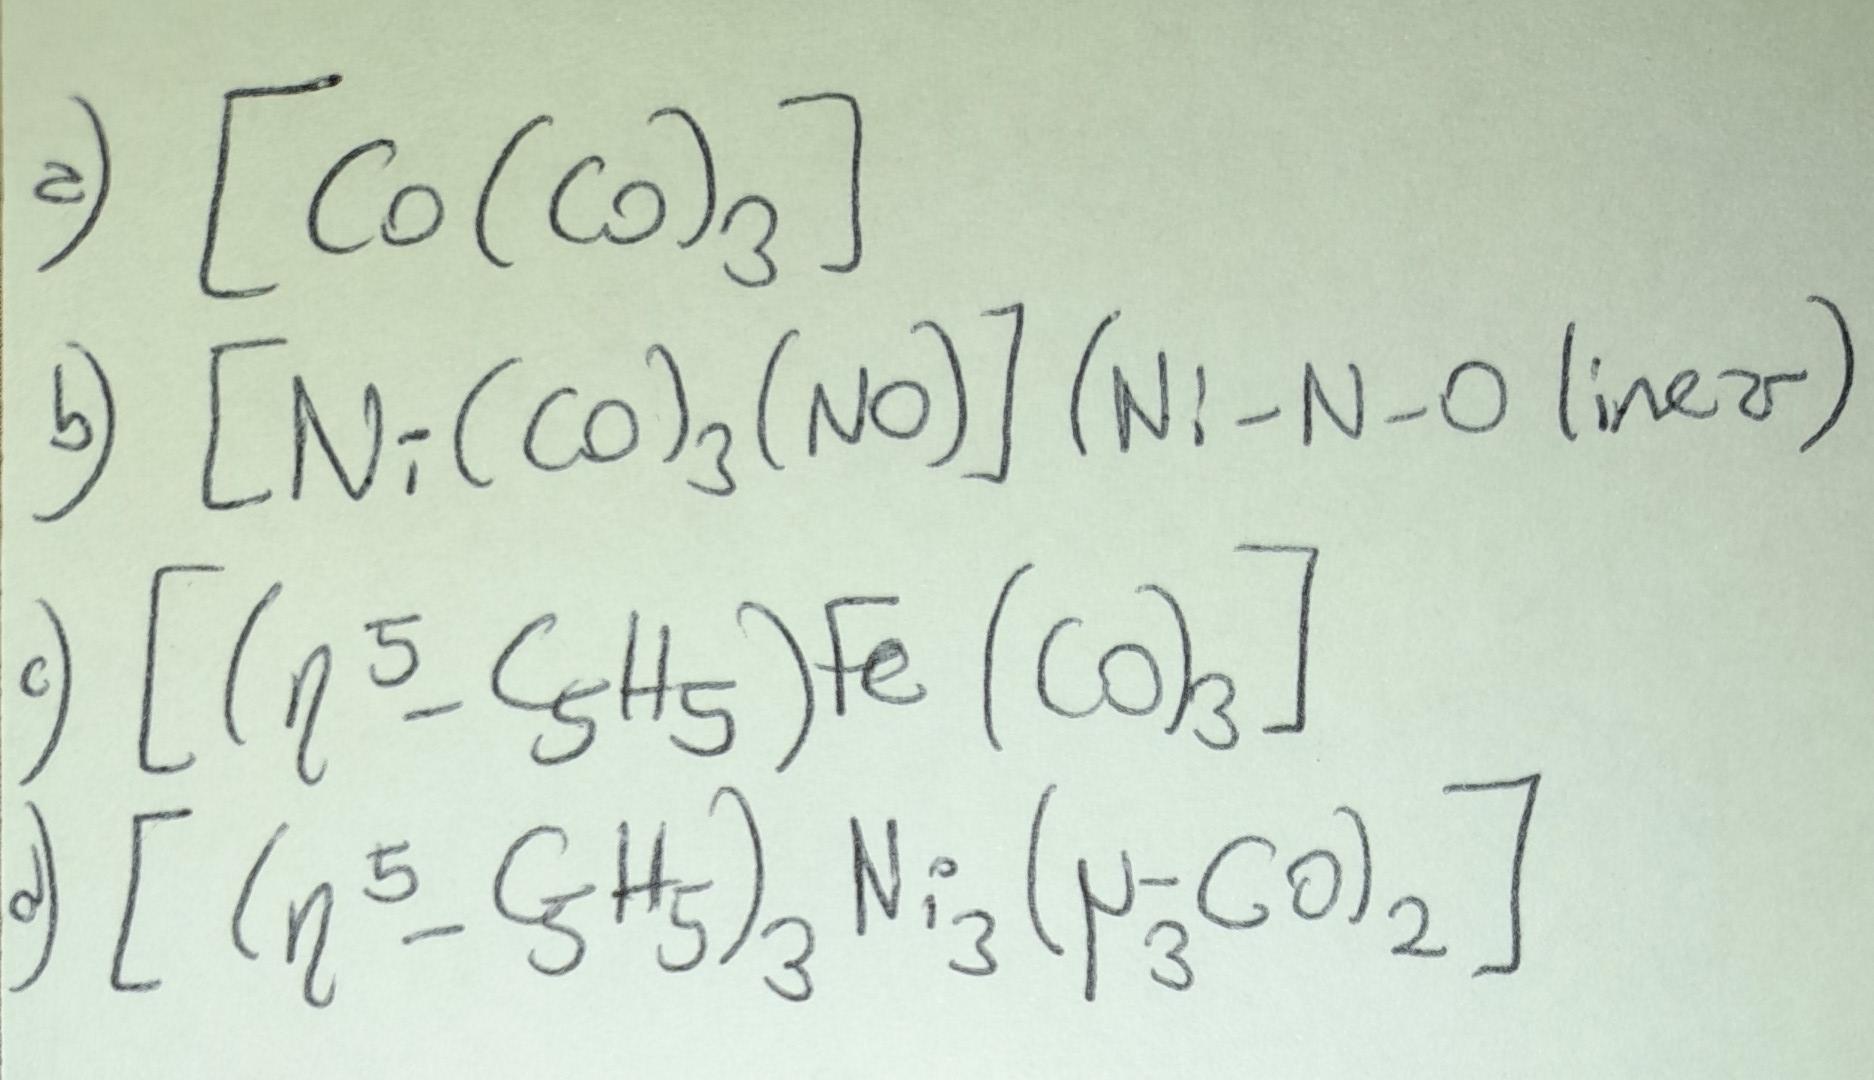 a) [Co(CO)₃]
b) [Ni(CO)₃(NO)] (Ni-N-O linear)
c) [(η⁵-C₅H₅)Fe(CO)₃]
d) [(η⁵-C₅H₅)₃Ni₃(μ₃-CO)₂]